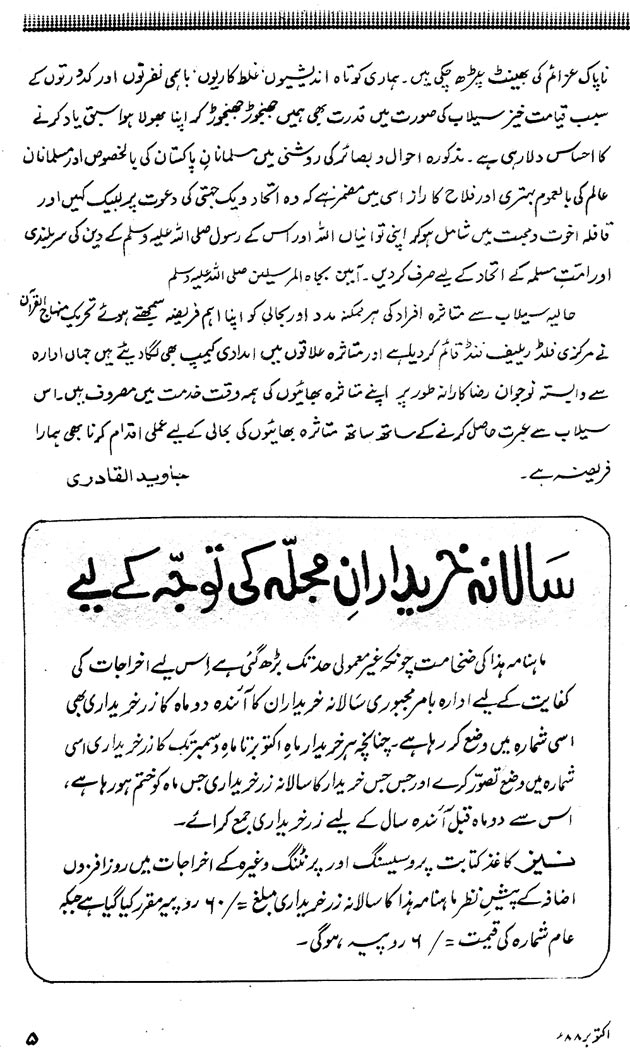 ناپاک عزائم کی بھینٹ چڑھ چکی ہیں۔ ہماری کوتاہ اندیشیوں، غلط کاریوں، باہمی نفرتوں اور کدورتوں کے
سبب قیامت خیز سیلاب کی صورت میں قدرت بھی ہمیں جھنجوڑ جھنجوڑ کر اپنا بھولا ہوا سبق یاد کرنے
کا احساس دلا رہی ہے۔ مذکورہ احوال و بصائر کی روشنی میں مسلمانانِ پاکستان کی بالخصوص اور مسلمانان
عالم کی بالعموم بہتری اور فلاح کا راز اسی میں مضمر ہے کہ وہ اتحاد و یک جہتی کی دعوت پر لبیک کہیں اور
قافلہ اخوت و محبت میں شامل ہو کر اپنی توانیاں اللہ اور اس کے رسول صلی اللہ علیہ وسلم کے دین کی سربلندی
اور امتِ مسلمہ کے اتحاد کے لیے صرف کر دیں۔ آمین بجاہ المرسلین صلی اللہ علیہ وسلم
حالیہ سیلاب سے متاثرہ افراد کی ہر ممکنہ مدد اور بحالی کو اپنا اہم فریضہ سمجھتے ہوئے تحریک منہاج القرآن
نے مرکزی فلڈ ریلیف فنڈ قائم کر دیا ہے اور متاثرہ علاقوں میں امدادی کیمپ بھی لگا دیئے ہیں جہاں ادارہ
سے وابستہ نوجوان رضاکارانہ طور پر اپنے متاثرہ بھائیوں کی ہمہ وقت خدمت میں مصروف ہیں۔ اس
سیلاب سے عبرت حاصل کرنے کے ساتھ ساتھ متاثرہ بھائیوں کی بحالی کے لیے عملی اقدام کرنا بھی ہمارا
فریضہ ہے۔ جاوید القادری
سالانہ خریدارانِ مجلّہ کی توجّہ کے لیے
ماہنامہ ہذا کی ضخامت چونکہ غیر معمولی حد تک بڑھ گئی ہے اِس لیے اخراجات کی
کفایت کے لیے ادارہ بامر مجبوری سالانہ خریداران کا آئندہ دو ماہ کا زر خریداری بھی
اسی شمارہ میں وضع کر رہا ہے۔ چنانچہ ہر خریدار ماہِ اکتوبر تا ماہِ دسمبر تک کا زر خریداری اسی
شمارہ میں وضع تصوّر کرے اور جس جس خریدار کا سالانہ زر خریداری جس ماہ کو ختم ہو رہا ہے،
اس سے دو ماہ قبل آئندہ سال کے لیے زر خریداری جمع کرائے۔
نیز کاغذ کتابت پروسیسنگ اور پرنٹنگ وغیرہ کے اخراجات میں روز افزوں
اضافہ کے پیشِ نظر ماہنامہ ہذا کا سالانہ زر خریداری مبلغ =/۶۰ روپیہ مقرر کیا گیا ہے جبکہ
عام شمارہ کی قیمت =/۶ روپیہ ہوگی۔
اکتوبر ۸۸ء
۵